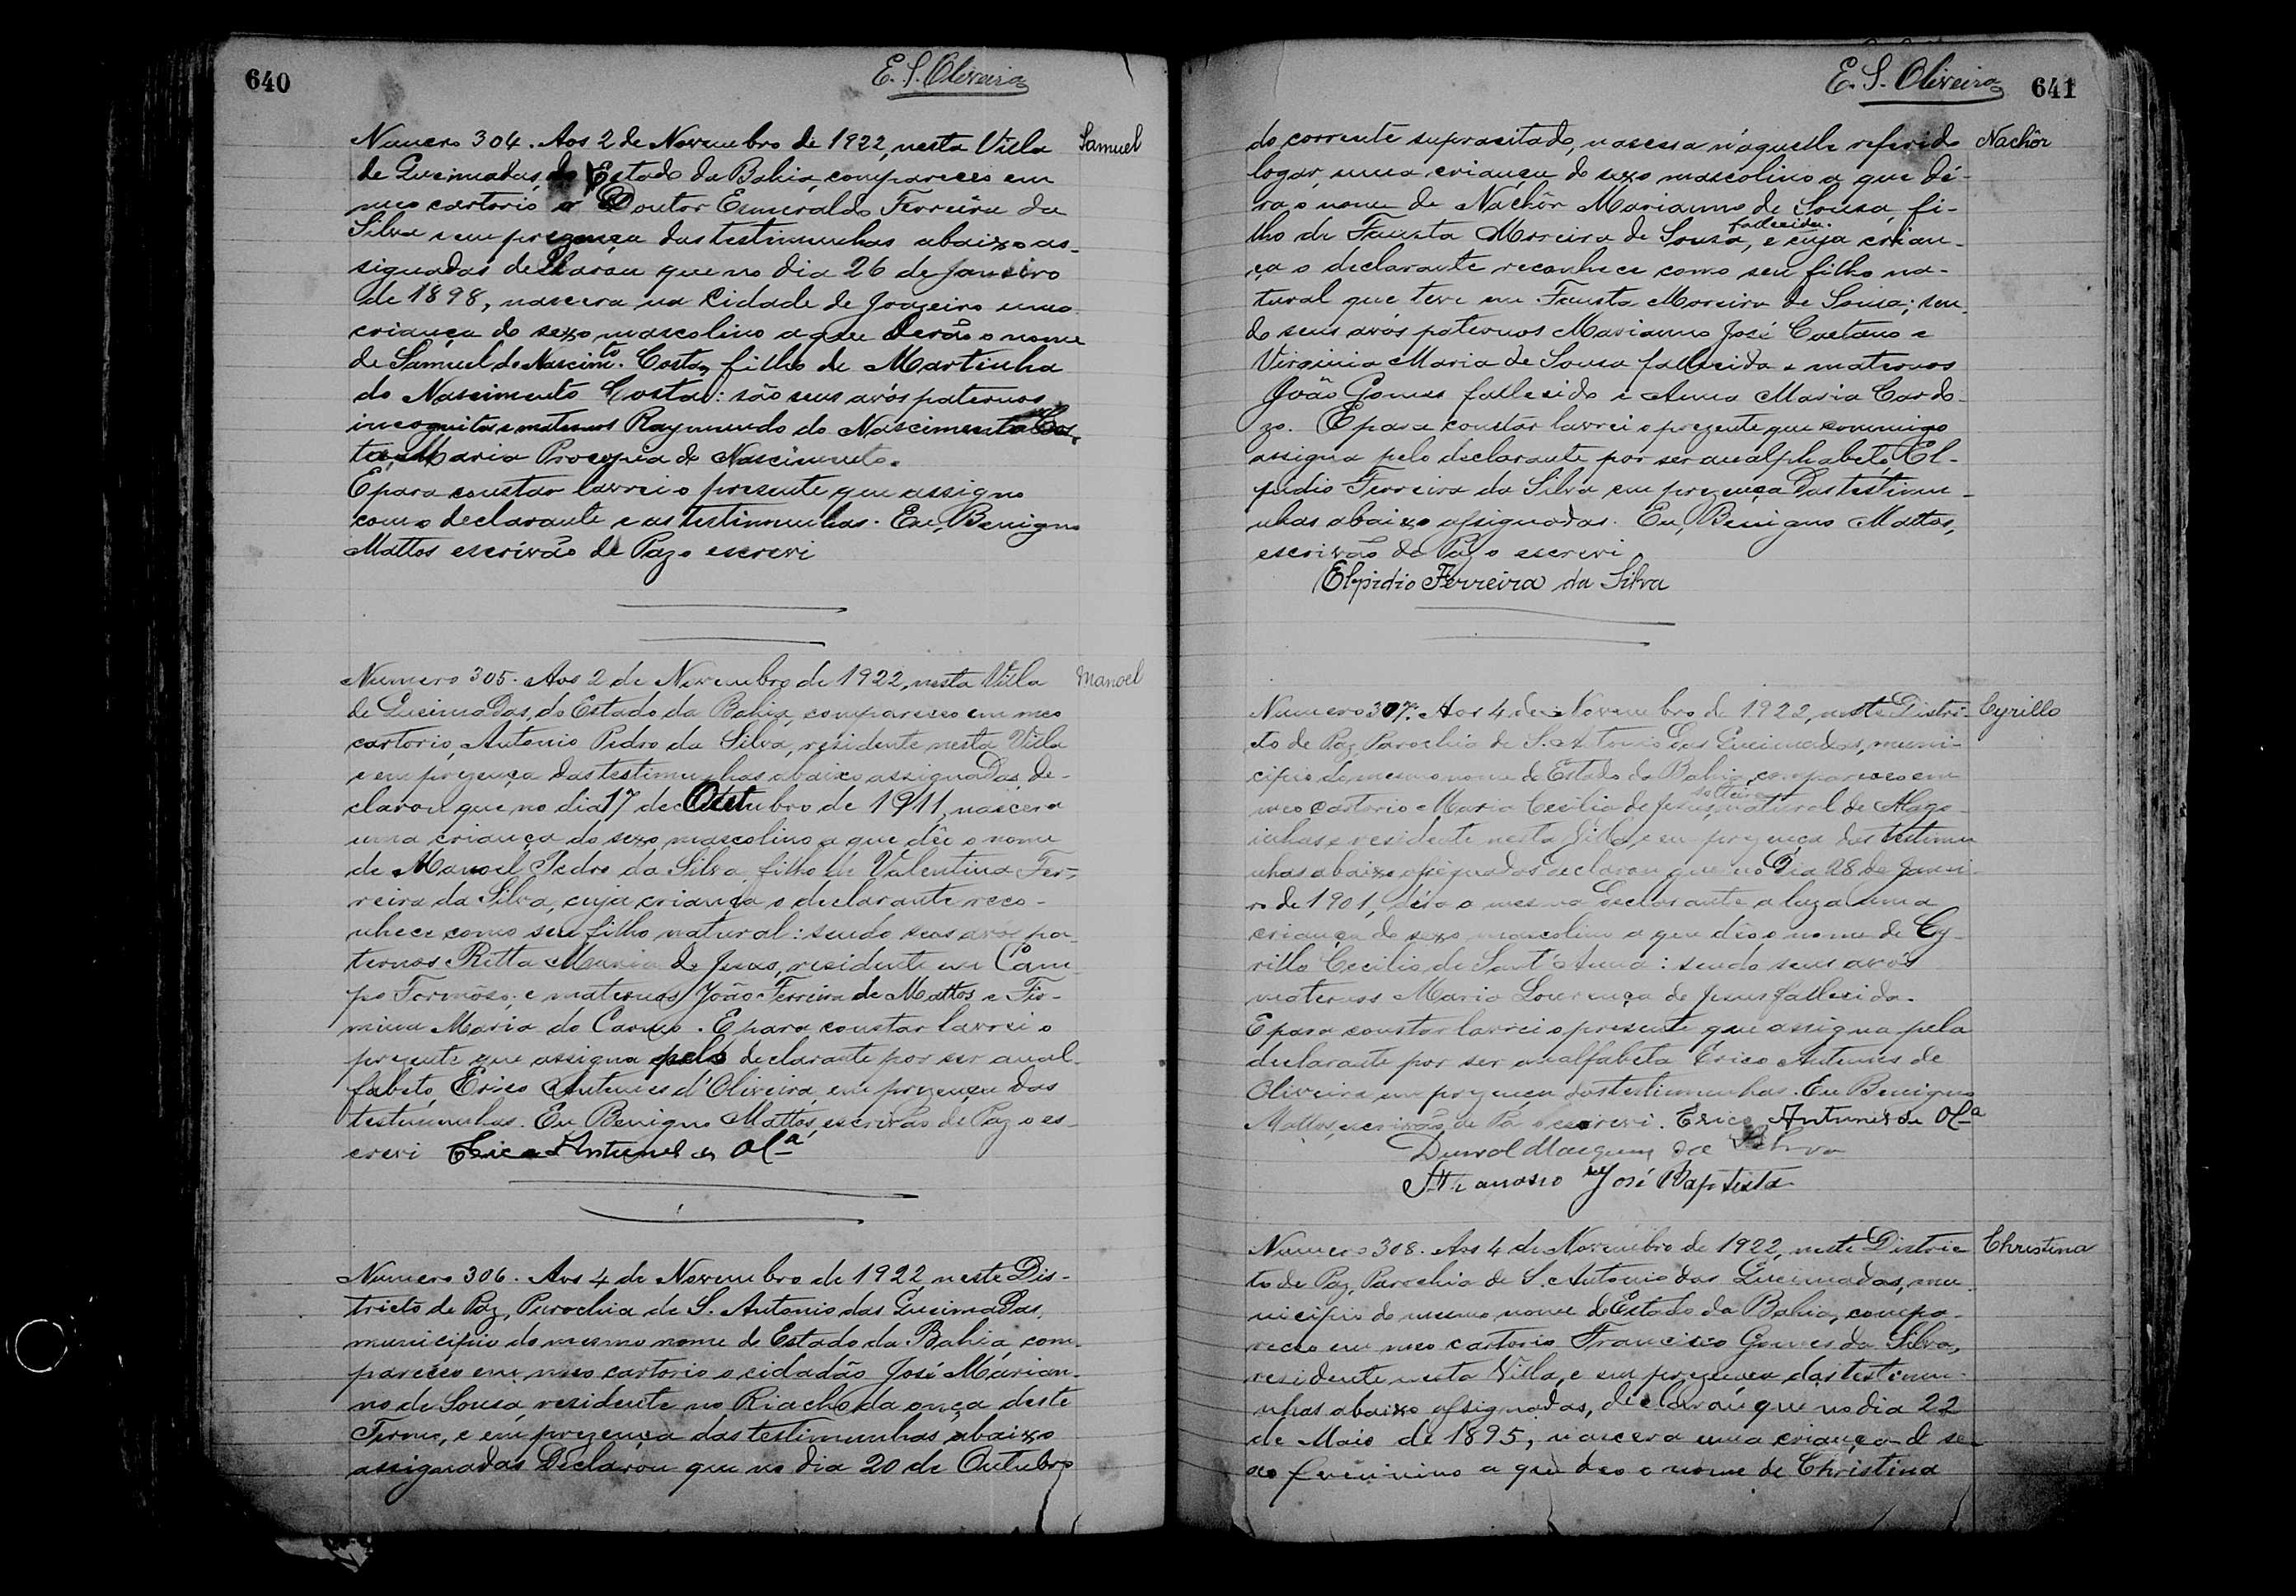 640
E. S. Oliveira
Numero 304. Aos 2 de Novembro de 1922, nesta Villa
Samuel
de Queimadas, do Estado da Bahia, compareceo em
meo cartorio o Doutor Esmeraldo Ferreira da
Silva e em prezença das testimunhas abaixo as-
signadas declarou que no dia 26 de Janeiro
de 1898, nascera na Cidade de Joazeiro uma
criança do sexo mascolino a que derão o nome
de Samuel do Nascimto. Costa, filho de Martinha
do Nascimento Costa: são seus avós paternos
incognitos e maternos Raymundo do Nascimento Cos-
ta, Maria do Nascimento.
E para constar lavrei o presente que assigno
com o declarante e as testimunhas. Eu, Benigno
Mattos escrivão de Paz o escrevi
Numero 305. Aos 2 de Novembro de 1922, nesta Villa
Manoel
de Queimadas, do Estado da Bahia, compareceo em meo
cartorio, Antonio Pedro da Silva, residente nesta Villa
e em prezença das testimunhas abaixo assignadas, de-
clarou que no dia 17 de Outubro de 1911, nascera
uma criança do sexo mascolino a que dêo o nome
de Manoel Pedro da Silva, filho de Valentina Fer-
reira da Silva, cuja criança o declarante reco-
nhece como seu filho natural: sendo seos avos pa-
ternos Ritta Maria de Jesus, residente em Cam-
po Formôso; e maternos João Ferreira de Mattos e Fir-
mina Maria do Carmo. E para constar lavrei o
prezente que assigna pelo declarante por ser anal-
fabéto, Erico Antunes d'Oliveira, em prezença das
testimunhas. Eu Benigno Mattos, escrivão de Paz o es-
crevi Erico Antunes de Olª
Numero 306. Aos 4 de Novembro de 1922, neste Dis-
tricto de Paz, Parochia de S. Antonio das Queimadas,
municipio do mesmo nome do Estado da Bahia, com-
pareceo em meo cartorio o cidadão José Marian-
no de Sousa, residente no Riacho da onça deste
Termo, e em prezença das testimunhas abaixo
assignadas declarou que no dia 20 de Outubro
E. S. Oliveira
641
do corrente suprasitado, nascera n'aquelle referido
Nachôr
logar, uma criança do sexo mascolino a que dé-
ra o nome de Nachôr Marianno de Sousa, fi-
lho de Fausta Moreira de Sousa, fallecida. e cuja crian-
ça o declarante reconhece como seu filho na-
tural que teve em Fausta Moreira de Sousa; sen-
do seus avós paternos Marianno José Caetano e
Virginia Maria de Sousa fallecida e maternos
João Gomes fallecido e Anna Maria Cardo-
zo. E para constar lavrei o prezente que commigo
assigna pelo declarante por ser analphabeto, El-
pidio Ferreira da Silva em prezença das testimu-
nhas abaixo assignadas. Eu, Benigno Mattos,
escrivão de Paz o escrevi
Elpidio Ferreira da Silva
Numero 307. Aos 4 de Novembro de 1922, neste Distri-
Cyrillo
cto de Paz, Parochia de S. Antonio das Queimadas, muni-
cipio do mesmo nome do Estado da Bahia, compareceo em
meo cartorio Maria Cecilia de Jesus, solteira, natural de Alago-
inhas e residente nesta Villa, e em prezença das testimu-
nhas abaixo assignadas declarou que no dia 28 de Janei-
ro de 1901, déra a mesma declarante a luz a uma
criança do sexo mascolino a que dêo o nome de Cy-
rillo Cecilio de Sant'Anna: sendo seus avós
maternos Maria Lourença de Jesus fallecida.
E para constar lavrei o presente que assigna pela
declarante por ser analfabeta Erico Antunes de
Oliveira em prezença das testimunhas. Eu Benigno
Mattos, escrivão de Paz o escrevi. Erico Antunes de Olª
Durval Marques da Silva
José Baptista
Numero 308. Aos 4 de Novembro de 1922, neste Distric-
Christina
to de Paz, Parochia de S. Antonio das Queimadas, mu-
nicipio do mesmo nome do Estado da Bahia, compa-
receo em meo cartorio Francisco Gomes da Silva,
residente nesta Villa, e em prezença das testimu-
nhas abaixo assignadas, declarou que no dia 22
de Maio de 1895, nascera uma criança do se-
xo feminino a que deo o nome de Christina